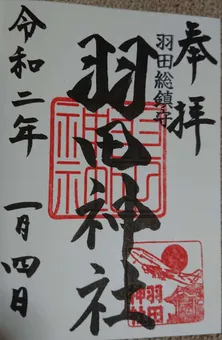 奉拝
羽田総鎮守
羽田神社
令和二年
一月四日
羽田
神社